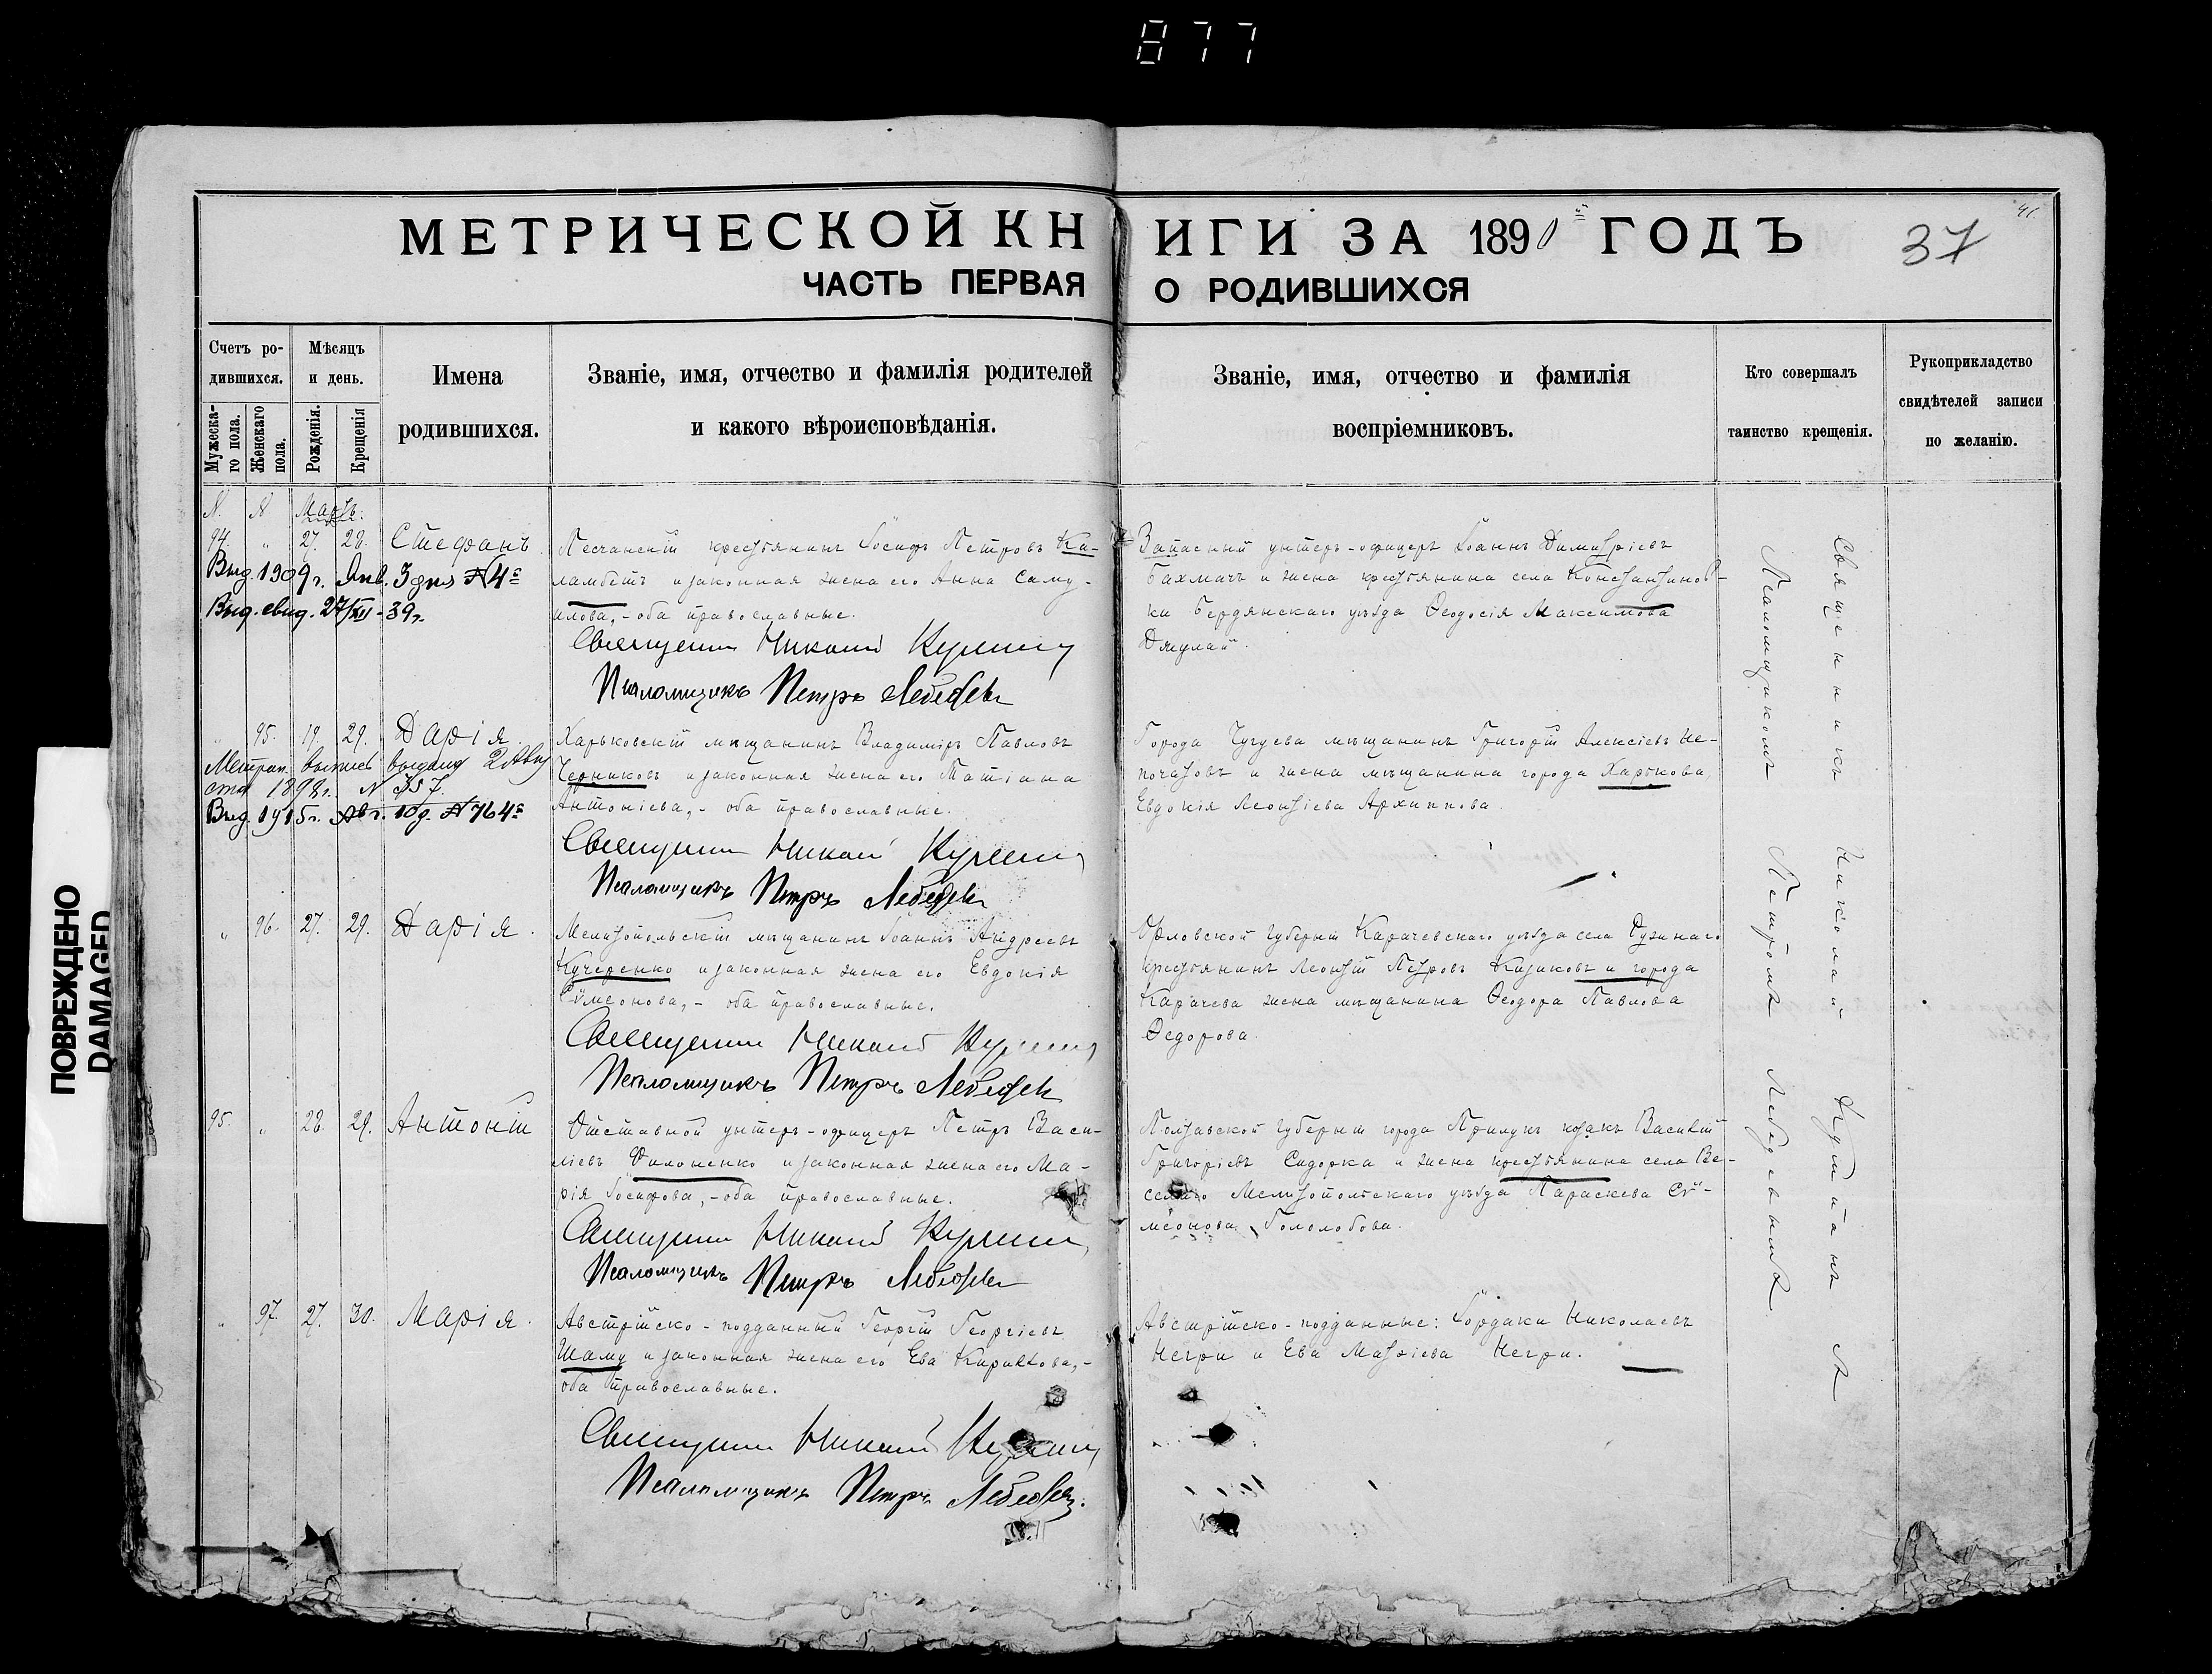 877
МЕТРИЧЕСКОЙ КНИГИ ЗА 1890 ГОДЪ
37
41.
ЧАСТЬ ПЕРВАЯ О РОДИВШИХСЯ
Счетъ ро-
дившихся.
Мужеска-
го пола.
Женскаго
пола.
Мѣсяцъ
и день.
Рожденія.
Крещенія
Имена
родившихся.
Званіе, имя, отчество и фамилія родителей
и какого вѣроисповѣданія.
Званіе, имя, отчество и фамилія
воспріемниковъ.
Кто совершалъ
таинство крещенія.
Рукоприкладство
свидѣтелей записи
по желанію.
N. N Мартъ.
94. " 27. 28. Стефанъ
Выд. 1909 г. Янв. 3 дня № 4
Выд. свид. 27/XII-39 г.
Песчанскій крестьянинъ Іосифъ Петровъ Ка-
ламбетъ и законная жена его Анна Саму-
илова,- оба православные.
Священникъ Николай
Псаломщикъ Петръ Лебедевъ
Запасный унтеръ-офицеръ Іоаннъ Димитріевъ
Бахмачъ и жена крестьянина села Константинов-
ки Бердянскаго уѣзда Ѳеодосія Максимова
" 95. 19. 29. Дарія.
Метрич. выпись выдана 2 Авгу
ста 1898 г. N 357.
Выд. 1915 г. Авг. 10 д. № 764
Харьковскій мѣщанинъ Владиміръ Павловъ
Черниковъ и законная жена его Татіана
Антоніева,- оба православные.
Священникъ Николай
Псаломщикъ Петръ Лебедевъ
Города Чугуева мѣщанинъ Григорій Алексіевъ Не-
початовъ и жена мѣщанина города Харькова,
Евдокія Леонтіева Архиппова.
" 96. 27. 29. Дарія.
Мелитопольскій мѣщанинъ Іоаннъ Андреевъ
Кучеренко и законная жена его Евдокія
Сѵмеонова,- оба православные.
Священникъ Николай
Псаломщикъ Петръ Лебедевъ
Орловской губерніи Карачевскаго уѣзда села
крестьянинъ Леонтій Петровъ Казаковъ и города
Карачева жена мѣщанина Ѳеодора Павлова
Ѳедорова.
95. " 28. 29. Антоній
Отставной унтеръ-офицеръ Петръ Васи-
ліевъ Филоненко и законная жена его Ма-
рія Іосифова,- оба православные.
Священникъ Николай
Псаломщикъ Петръ Лебедевъ
Полтавской губерніи города Прилукъ козакъ Василій
Григоріевъ Сидорка и жена крестьянина села Ве-
селаго Мелитопольскаго уѣзда Параскева Сѵ-
меонова Гололобова.
" 97. 27. 30. Марія.
Австрійско-подданный Георгій Георгіевъ
Шаму и законная жена его Ева Кириллова,-
оба православные.
Священникъ Николай
Псаломщикъ Петръ Лебедевъ.
Австрійско-подданные: Іордаки Николаевъ
Негри и Ева Матѳіева Негри.
Священникъ Николай
Псаломщикомъ Петромъ Лебедевымъ
ПОВРЕЖДЕНО
DAMAGED